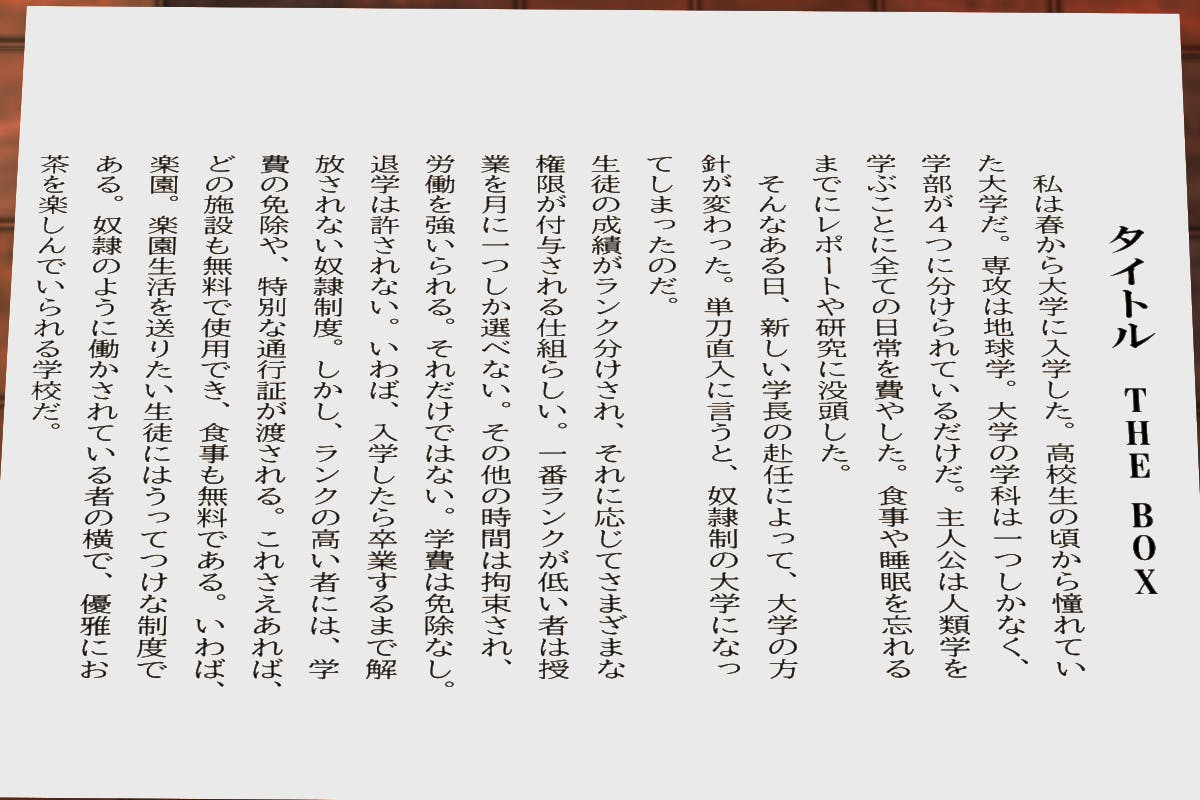 タイトル THE BOX
私は春から大学に入学した。高校生の頃から憧れてい
た大学だ。専攻は地球学。大学の学科は一つしかなく、
学部が４つに分けられているだけだ。主人公は人類学を
学ぶことに全ての日常を費やした。食事や睡眠を忘れる
までにレポートや研究に没頭した。
そんなある日、新しい学長の赴任によって、大学の方
針が変わった。単刀直入に言うと、奴隷制の大学になっ
てしまったのだ。
生徒の成績がランク分けされ、それに応じてさまざまな
権限が付与される仕組らしい。一番ランクが低い者は授
業を月に一つしか選べない。その他の時間は拘束され、
労働を強いられる。それだけではない。学費は免除なし。
退学は許されない。いわば、入学したら卒業するまで解
放されない奴隷制度。しかし、ランクの高い者には、学
費の免除や、特別な通行証が渡される。これさえあれば、
どの施設も無料で使用でき、食事も無料である。いわば、
楽園。楽園生活を送りたい生徒にはうってつけな制度で
ある。奴隷のように働かされている者の横で、優雅にお
茶を楽しんでいられる学校だ。